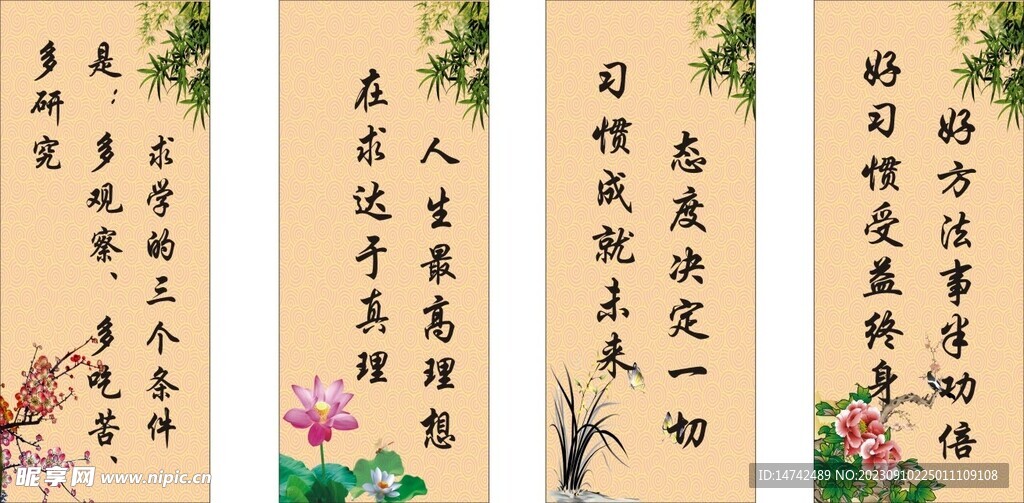 求学的三个条件
是：多观察、多吃苦、
多研究
人生最高理想
在求达于真理
态度决定一切
习惯成就未来
好方法事半功倍
好习惯受益终身
昵享网 www.nipic.cn
ID:14742489 NO:20230910225011109108